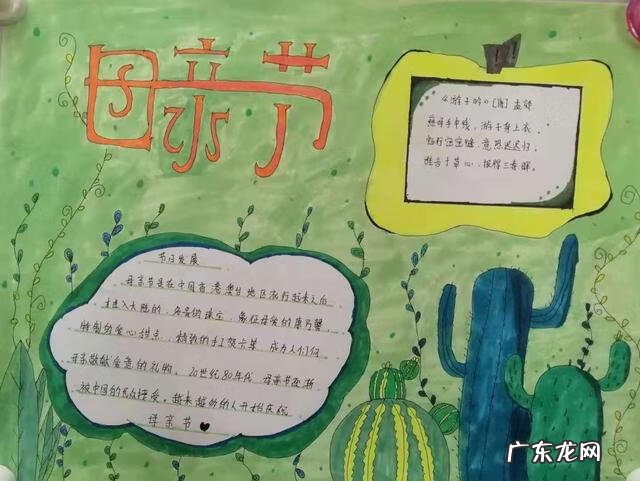 母亲节
《游子吟》[唐]孟郊
慈母手中线,游子身上衣。
临行密密缝,意恐迟迟归。
谁言寸草心,报得三春晖。
节日发展
母亲节是在中国香港澳台地区流行起来之后
才进入大陆的,名贵的珠宝,象征母爱的康乃馨,
特制的爱心甜点,精致的手工贺卡等,成为人们向
母亲敬献爱意的礼物。20世纪80年代,母亲节逐渐
被中国的民众接受。越来越多的人开始庆祝
母亲节
广东龙网